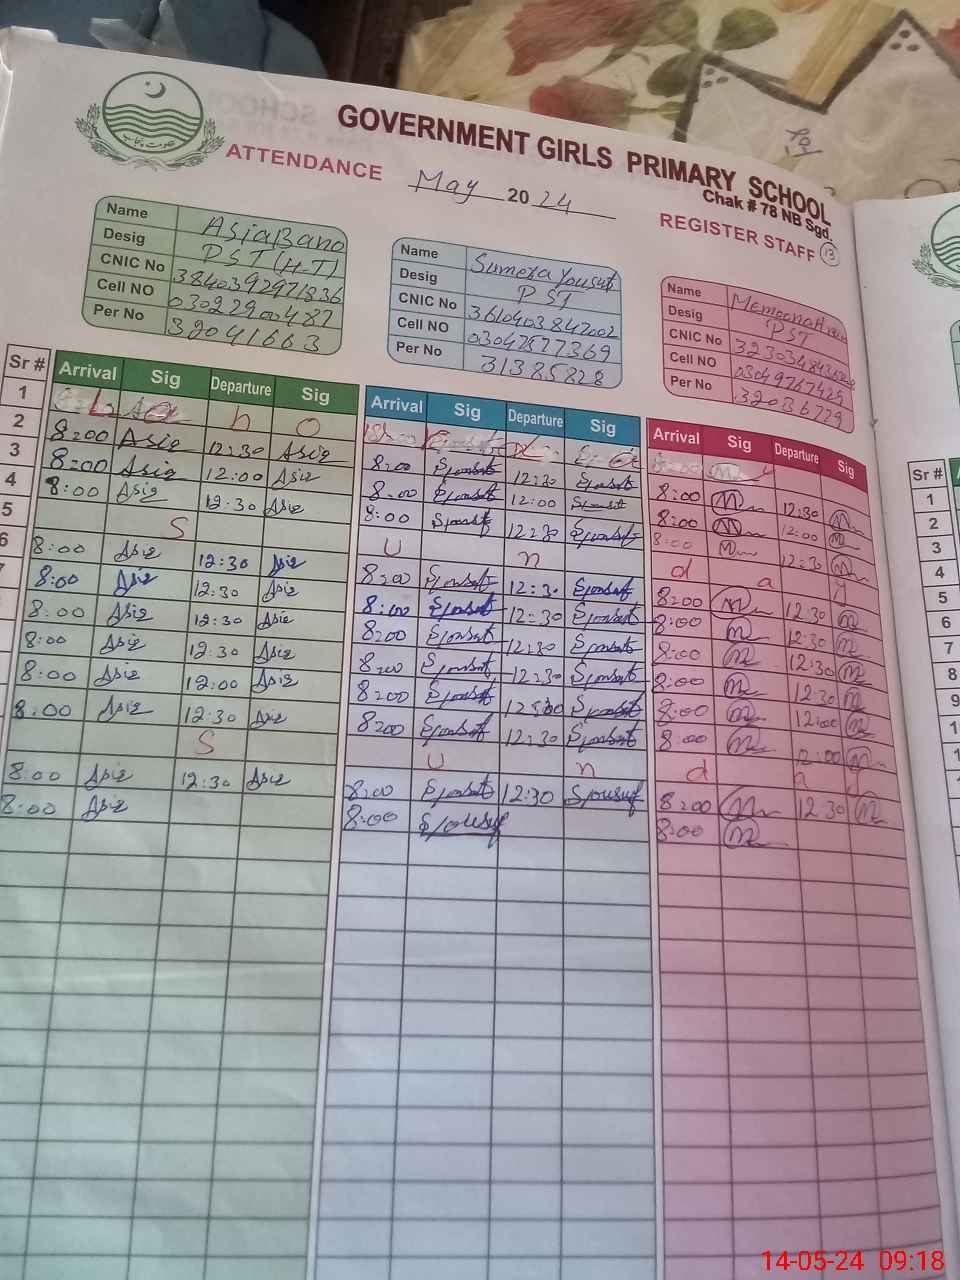 GOVERNMENT GIRLS PRIMARY SCHOOL
Chak # 78 NB Sgd.
ATTENDANCE May 2024 REGISTER STAFF 13
Name Asia Bano
Desig PST (H-T)
CNIC No 3840392971836
Cell NO 03022900487
Per No 32041663
Name Sumera Yousuf
Desig PST
CNIC No 3610403847002
Cell NO 03047577369
Per No 31385828
Name Memoona
Desig PST
CNIC No
Cell NO 03049767429
Per No 32036729
Sr # Arrival Sig Departure Sig Arrival Sig Departure Sig Arrival Sig Departure Sig
1
2 8:00 Asia 12:30 Asia 8:00 Syousuf 12:30 Syousuf 8:00 12:30
3 8:00 Asia 12:00 Asia 8:00 Syousuf 12:00 Syousuf 8:00 12:00
4 8:00 Asia 12:30 Asia 8:00 Syousuf 12:30 Syousuf 8:00 12:30
5 S u n d a y
6 8:00 Asia 12:30 Asia 8:00 Syousuf 12:30 Syousuf 8:00 12:30
8:00 Asia 12:30 Asia 8:00 Syousuf 12:30 Syousuf 8:00 12:30
8:00 Asia 12:30 Asia 8:00 Syousuf 12:30 Syousuf 8:00 12:30
8:00 Asia 12:30 Asia 8:00 Syousuf 12:30 Syousuf 8:00 12:30
8:00 Asia 12:00 Asia 8:00 Syousuf 12:00 Syousuf 8:00 12:00
8:00 Asia 12:30 Asia 8:00 Syousuf 12:30 Syousuf 8:00 12:00
S u n d a y
8:00 Asia 12:30 Asia 8:00 Syousuf 12:30 Syousuf 8:00 12:30
8:00 Asia 8:00 Syousuf 8:00
Sr #
1
2
3
4
5
6
7
8
9
14-05-24 09:18